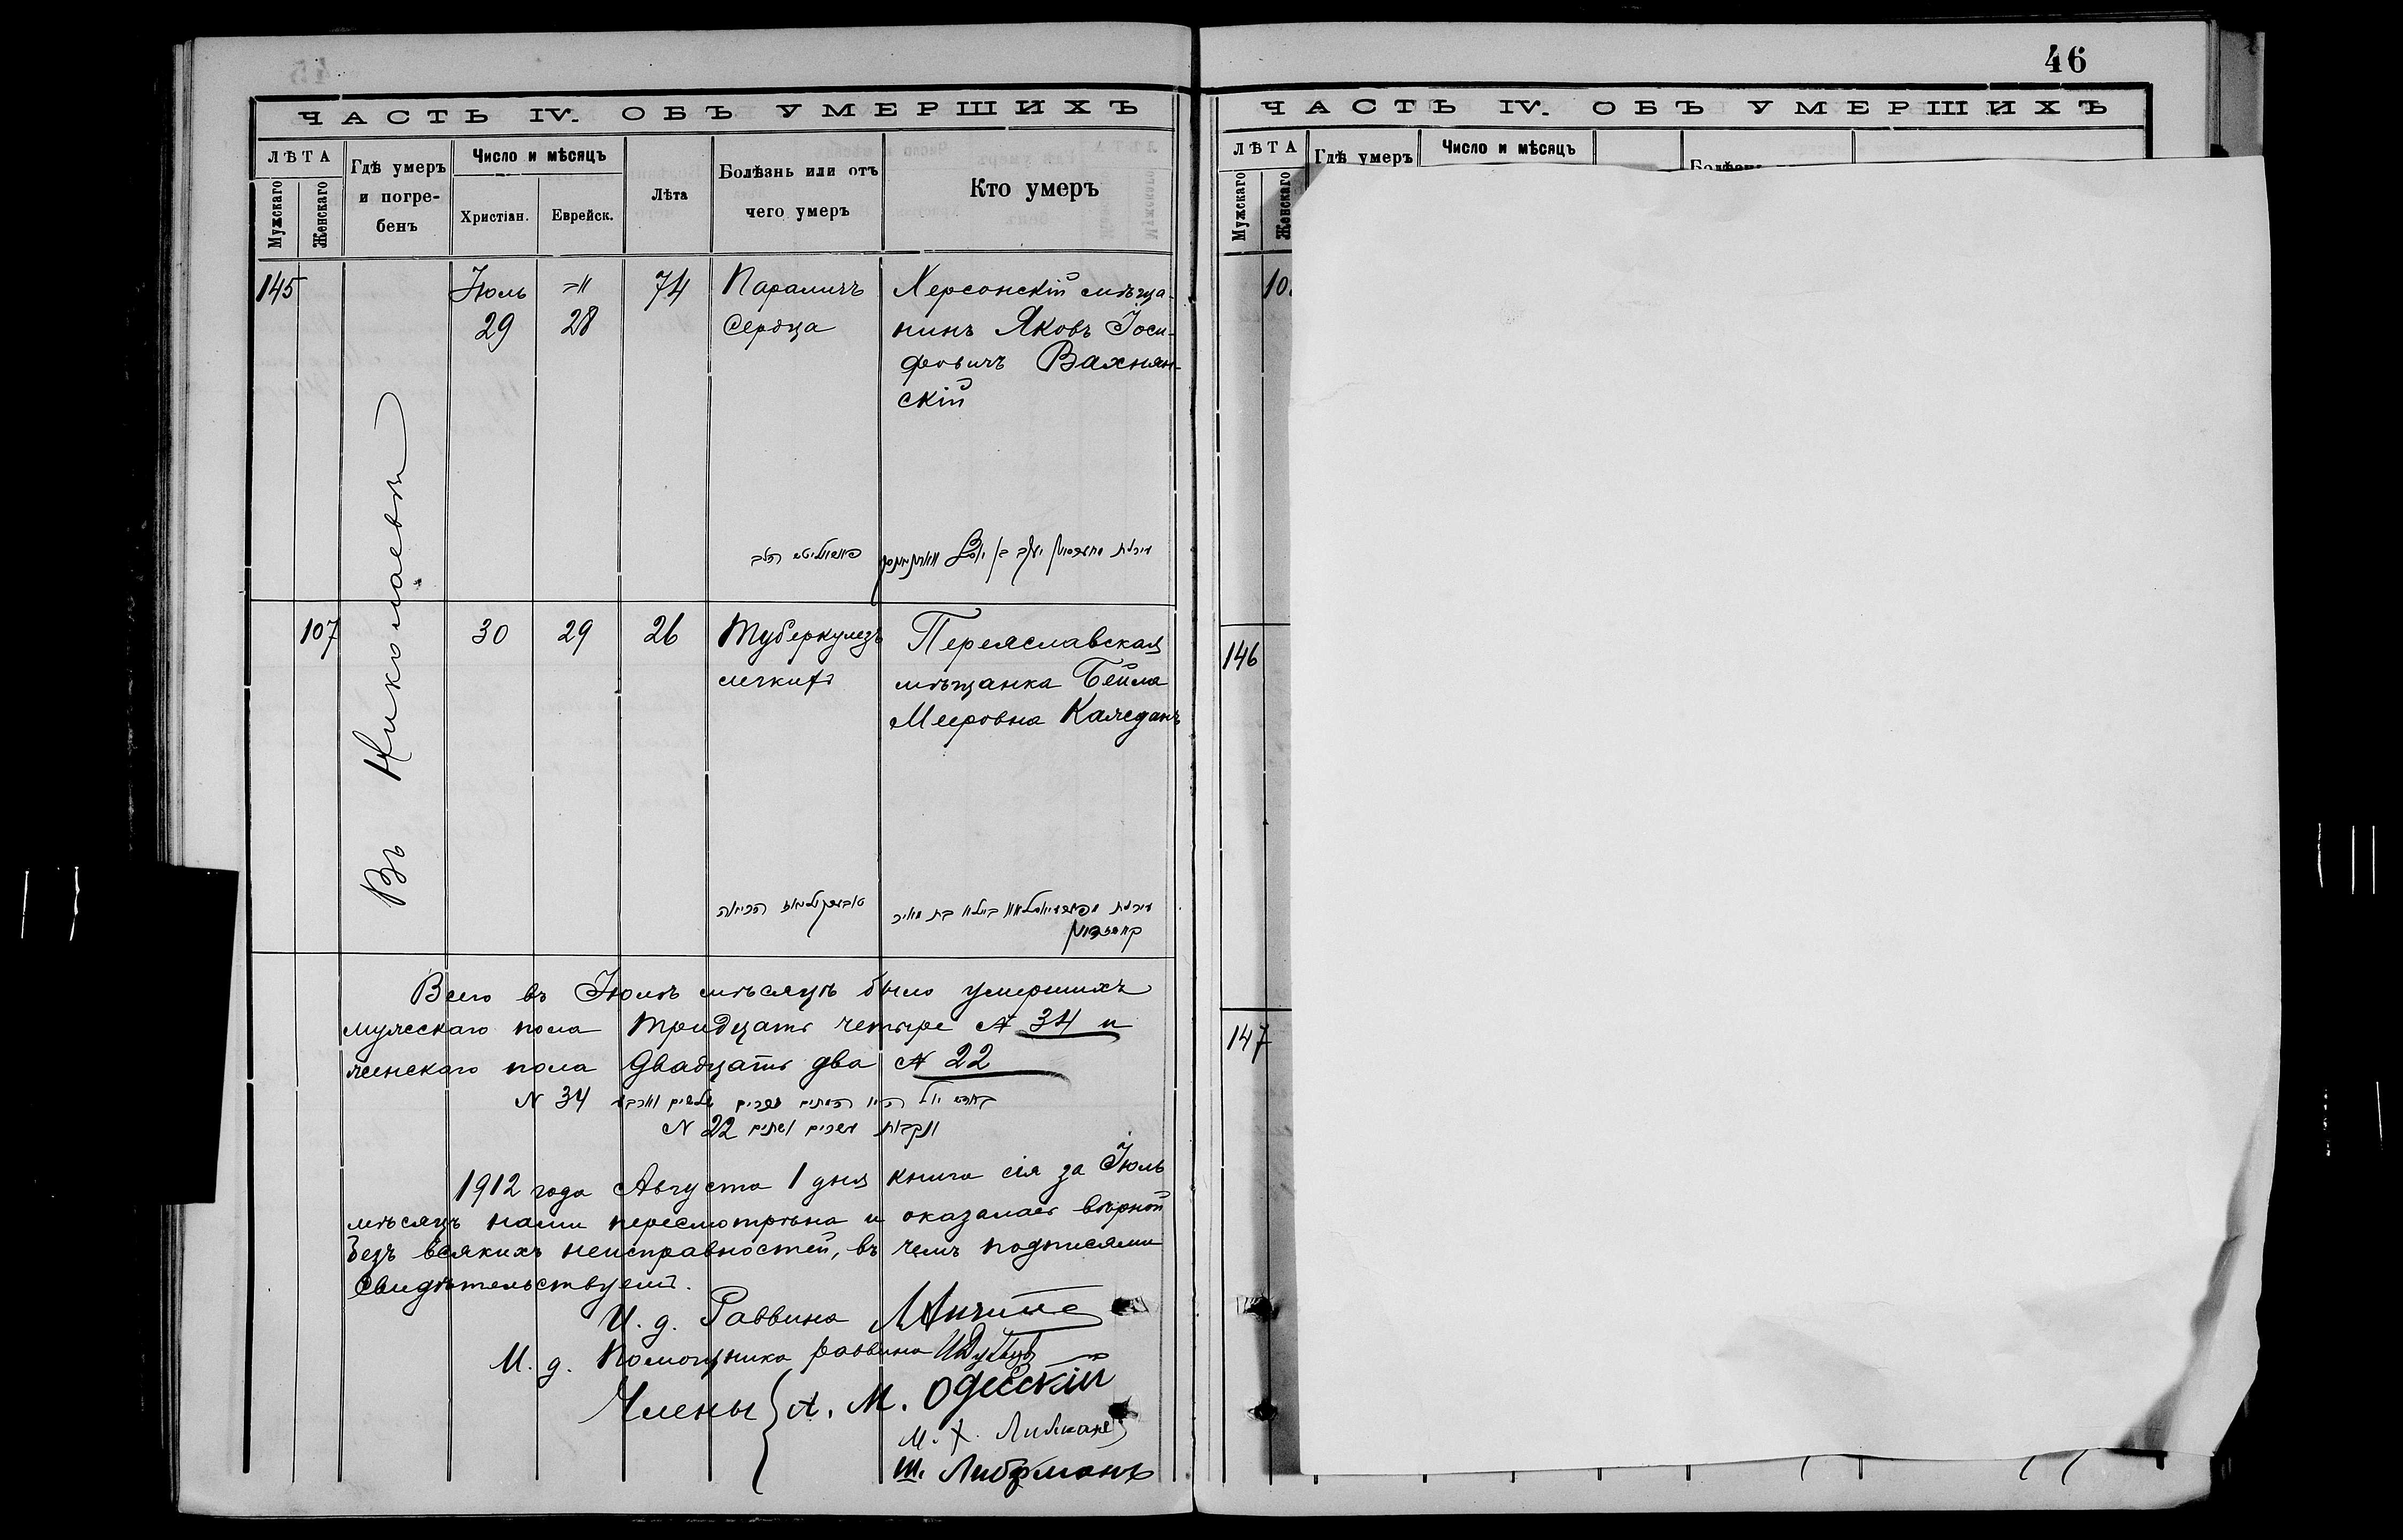 46
ЧАСТЬ IV. ОБЪ УМЕРШИХЪ
ЛѢТА
Мужскаго
Женскаго
Гдѣ умеръ
и погре-
бенъ
Число и мѣсяцъ
Христіан.
Еврейск.
Лѣта
Болѣзнь или отъ
чего умеръ
Кто умеръ
145
Іюль
29
28
74
Параличъ
сердца
Херсонскій мѣща-
нинъ Яковъ Іоси-
фовичъ Вахнян-
скій
Въ Николаевѣ
107
30
29
26
Туберкулезъ
легкихъ
Переяславская
мѣщанка Бейла
Мееровна
Всего въ Іюлѣ мѣсяцѣ было умершихъ
мужескаго пола тридцать четыре № 34 и
женскаго пола двадцать два № 22
№ 34
ונקבות עשרים ושתים № 22
1912 года Августа 1 дня книга сія за Іюль
мѣсяцъ нами пересмотрѣна и оказалась вѣрной
безъ всякихъ неисправностей, въ чемъ подписями
свидѣтельствуемъ.
И. д. Раввина
И. д. Помощника раввина
Члены А. М. Одесскій
М. Х.
Ш. Либерманъ
ЧАСТЬ IV. ОБЪ УМЕРШИХЪ
ЛѢТА
Мужскаго
Женскаго
Гдѣ умеръ
Число и мѣсяцъ
146
147